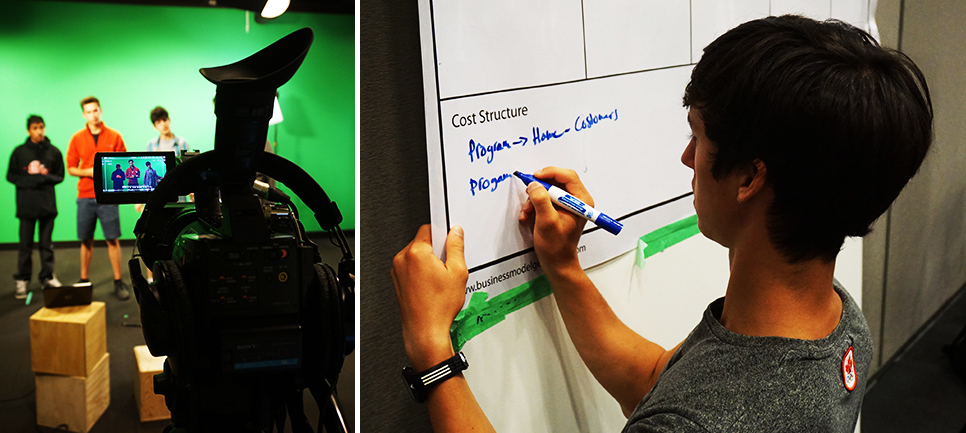 Cost Structure
Program → Home - Costomers
progam
www.businessmodelg
com